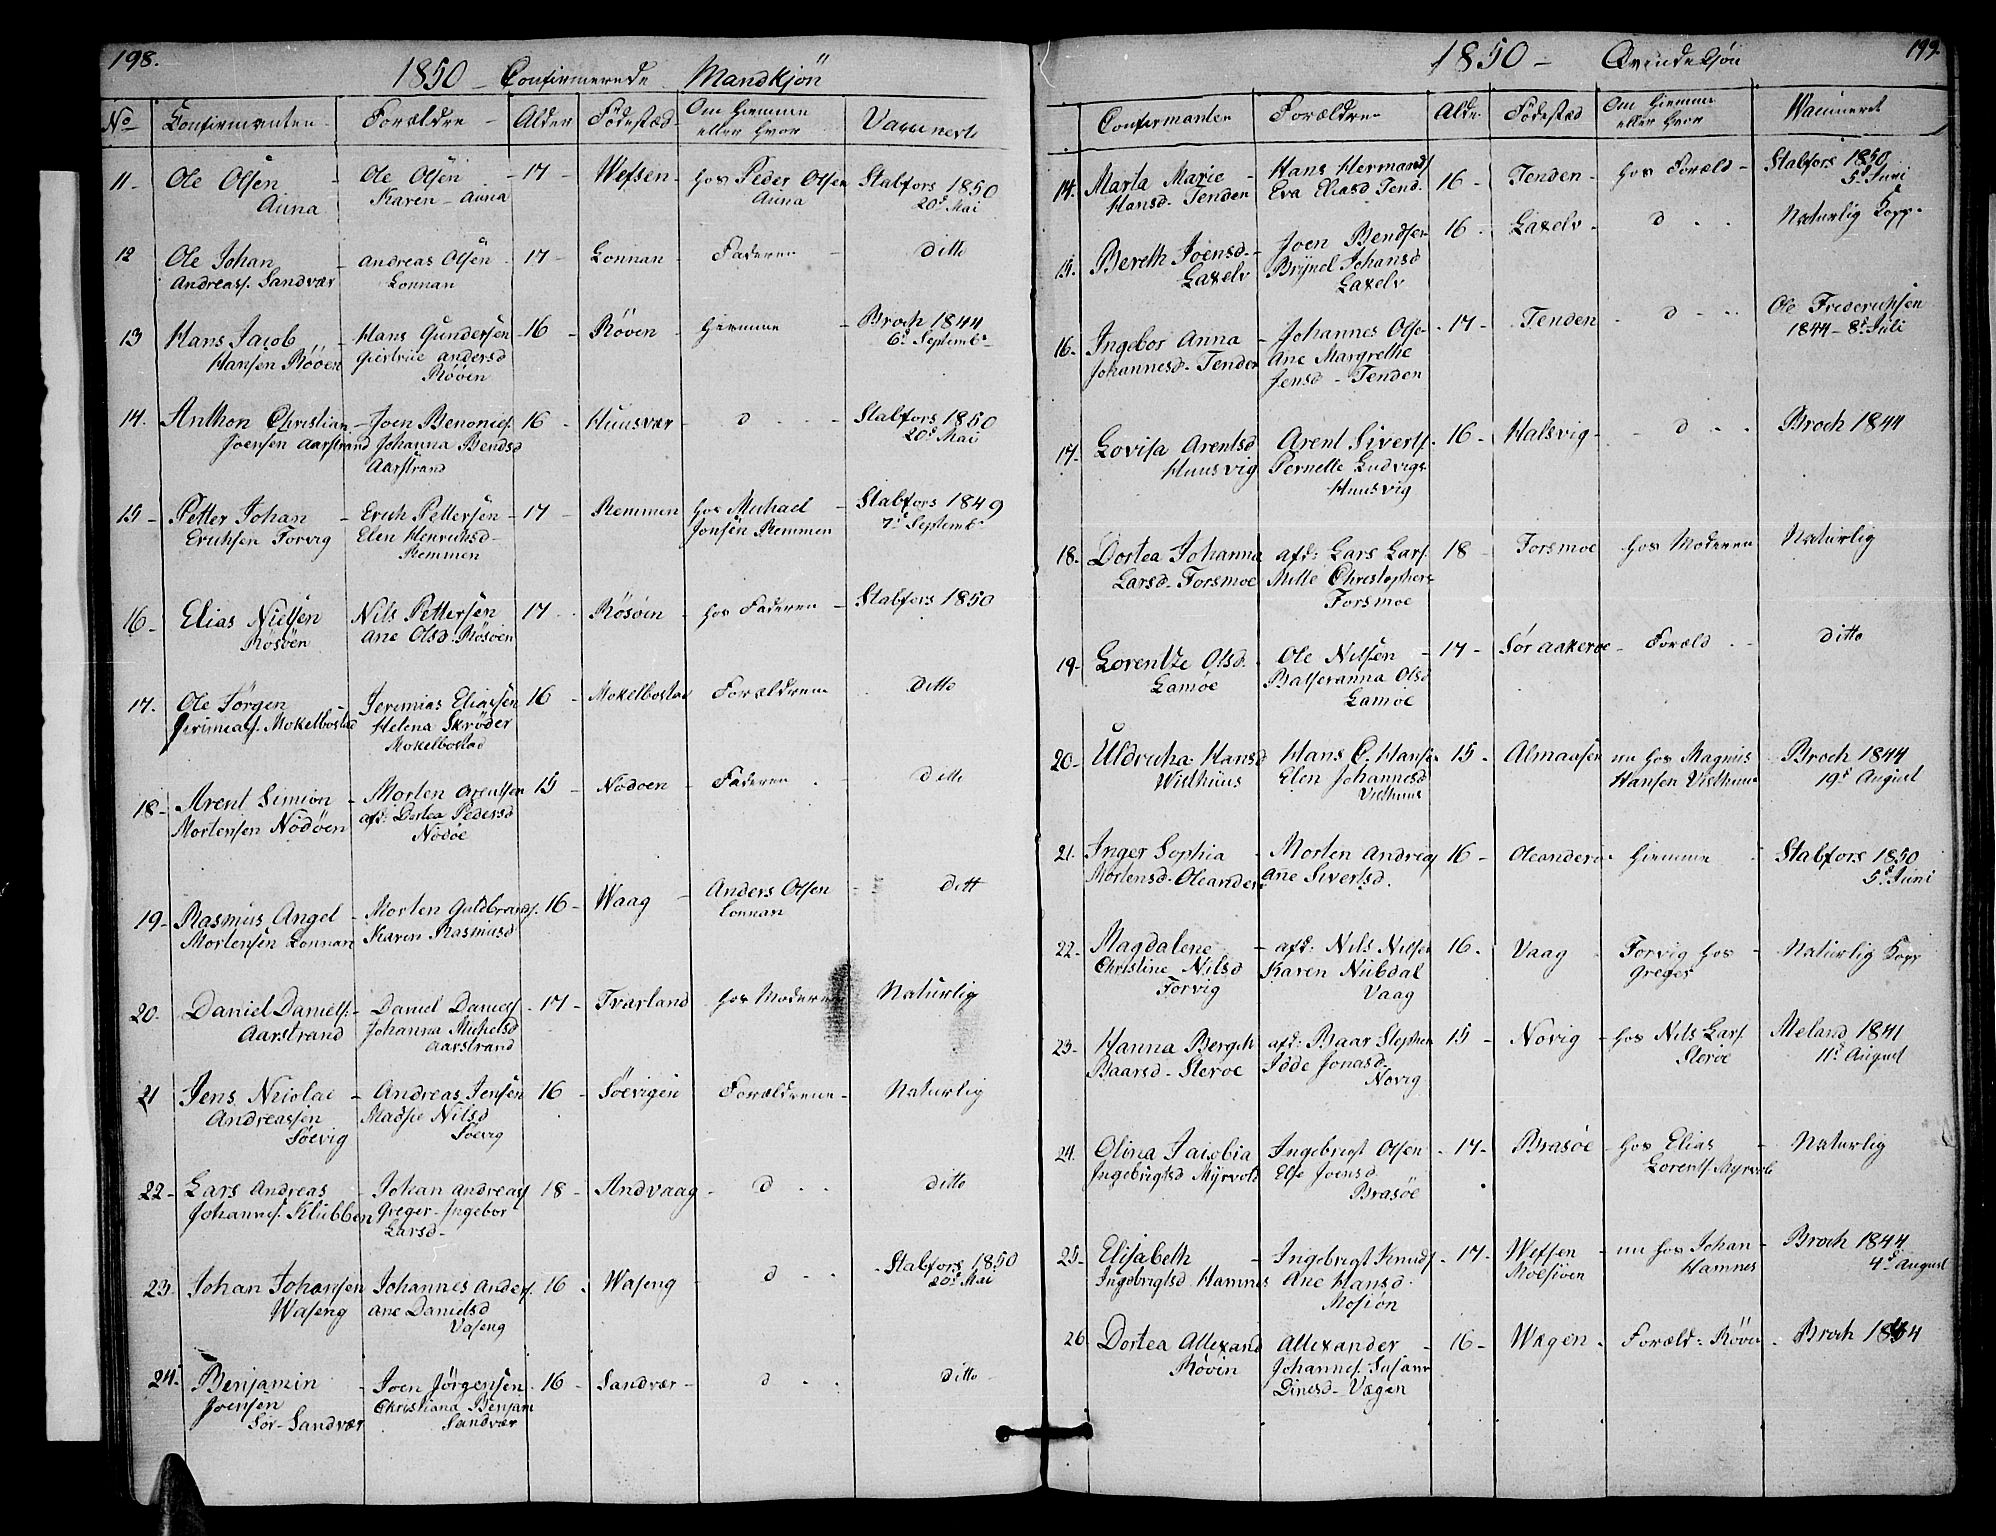 198.
1850 - Confirmerede Mandkjön
No Confirmanten Forældre Alder Födestæd Om hiemme eller hvor Vaccinerte
11 - Ole Olsen Anna - Ole Olsen Karen - Anna - 17 - Wefsen - hos Peder Olsen Anna Stabfors 1850 20d Mai
12 Ole Johan Andreass. Sandvær - Andreas Olsen Lonnan - 17 - Lonnan - Faderen - Ditto
13 Hans Jacob Hansen Rööen - Hans Gundersen Giertrue Andersd Röven - 16 - Röven - hiemme - Broch 1844 6d Septembr
14. Anthon Christian Joensen Aarstrand - Joen Benonies. Johanna Bendsd Aarstrand 16 - Huusvær - d - Stabfors 1850 20d Mai
15 - Petter Johan Erichsen Forvig - Erich Pettersen Elen Henrichsd - Remmen - 17 - Remmen hos Michael Jonsen Remmen - Stabfors 1849 7d Septembr
16 - Elias Nielsen Rösöen Nils Pettersen Ane Olsd. Rösöen 17 - Rösöen - hos Faderen - Stabfors 1850
17. Ole Jörgen Jerimeas. Mokelbostad - Jeremias Eliassen Helena Skröder Mokelbostad 16 - Mokelbostad Forældrene Ditto
18 - Arent Simion Mortensen Nödöen - Morten Arentsen afd: Dortea Pedersd Nödöe 15 - Nödöen - Faderen - Ditto
19 - Rasmus Angel Mortensen Lonnan - Morten Guldbrands. Karen Rasmusd 16 - Waag - Anders Olsen Lonnan - Ditt
20. Daniel Daniels. Aarstrand - Daniel Daniels Johanna Michelsd Aarstrand - 17 - Tværland - hos Moderen Naturlig
21 Jens Nicolai Andreassen Söevig - Andreas Jensen Madse Nilsd Söevig 16 - Söevigen - Forældrene - Naturlig
22 - Lars Andreas Johannes. Klubben - Johan Andreas Greger - Ingebor Larsd - 18 - Andvaag - d - Ditto
23 - Johan Johansen Waseng Johannes Anders. Ane Danielsd Vaseng 16 - Waseng - d - Stabfors 1850 20d Mai
24. Benjamin Joensen Sör - Sandvær - Joen Jörgensen Christiana Benjam Sandvær 16 - Sandvær - d - Ditto
199.
1850 - Qvindekjön
Confirmanten Forældre Alde. Födestæd Om hiemme eller hvor Waccineret
14. Marta Marie Hansd. Tenden - Hans Hermands Eva Eliasd Tend. 16 - Tenden - hos Foræld - Stabfors 1850 5d Juni
15. Bereth Joensd - Laxelv Joen Bendsen Brynel Johansd Laxelv 16 - Laxelv - d - Naturlig Kopp.
16. Ingebor Anna Johannesd - Tenden - Johannes Olse Ane Margrethe Jensd - Tenden - 17 - Tenden - d - Ole Frederichsen 1844 - 8d Juli
17. Lovisa Arentsd Huusvig Arent Siverts. Pernelle Ludvigs Huusvig 16 - Halsvig - d - Broch 1844
18. Dortea Johanna Larsd - Forsmoe afd: Lars Lars. Mille Christophers Forsmoe 18 - Forsmoe hos Moderen Naturlig
19. Lorentze Olsd. Lamöe Ole Nilsen Balseranna Olsd Lamöe - 17 - Sör Aakeröe - Foræld - Ditto
20 - Uldricha Hansd Wisthuus Hans C. Hanse Elen Johannesd Visthuus 15 - Almaasen nu hos Magnus Hansen Visthuus Broch 1844 19d August
21. Inger Sophia Mortensd - Oleanders - Morten Andreas Ane Sivertsd. 16 - Oleanders hiemme - Stabfors 1850 5d Juni
22 - Magdalene Christine Nilsd Forvig - afd: Nils Nilsen Karen Nubdal Vaag 16 - Vaag - Forvig hos Greger - Naturlig Kopp
23 - Hanna Bergith Baarsd - Steroe afd: Baar Stephen Idde Jonasd - Novig 15 - Novig - hos Nils Lars. Steroe Meland 1841 11d August
24. Olina Jacobia Ingebrigtsd Myrvold Ingebrigt Olsen Else Joensd Brasöe - 17 - Brasöe - hos Elias Lorents. Myrvold - Naturlig
25 - Elisabeth Ingebrigtsd Hamnes - Ingebrigt Knuds. Ane Hansd. Mosiön - 17 - Wefsen Mosiöen - nu hos Johan Hamnes - Broch 1844 4d August
26 Dortea Allexand Rövin Allexander Johannes. Susann Dinesd - Vægen - 16 - Wægen - Foræld: Röven - Broch 1844